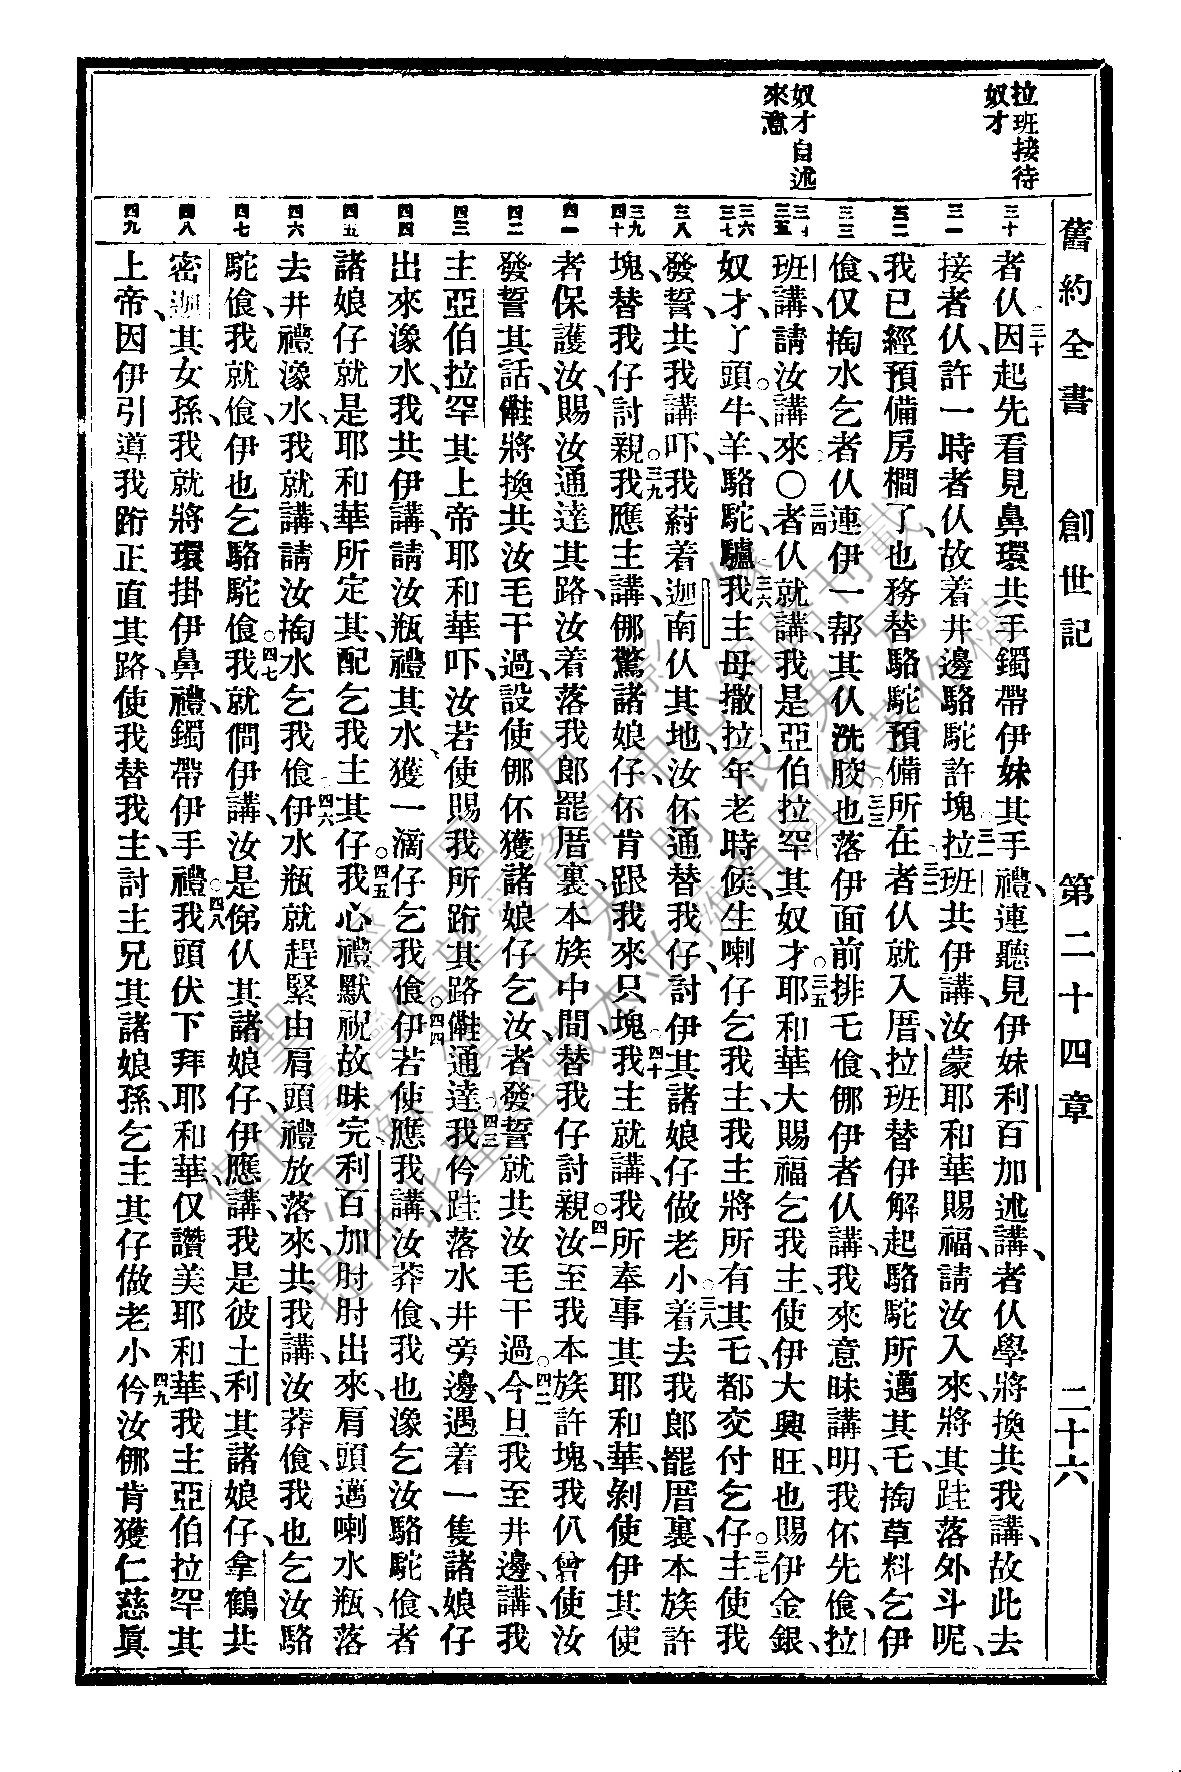 舊約全書 創世記 第二十四章 二十六
拉班接待
奴才
奴才自述
來意
三十 三一 三二 三三 三四 三五 三六 三七 三八 三九 四十 四一 四二 四三 四四 四五 四六 四七 四八 四九
者仈、三十因起先看見鼻環共手鐲帶伊妹其手禮、連聽見伊妹利百加述講、者仈學將換共我講、故此去
接者仈、許一時者仈故着井邊駱駝許塊、三一拉班共伊講、汝蒙耶和華賜福、請汝入來、將其跬落外斗呢、
我已經預備房櫊了、也務替駱駝預備所在、三二者仈就入厝、拉班替伊解起駱駝所邁其乇、掏草料乞伊
偹、仅掏水乞者仈連伊一幇其仈洗骹、三三也落伊面前排乇偹、𠆧伊者仈講、我來意昧講明、我伓先偹、拉
班講、請汝講來○三四者仈就講、我是亞伯拉罕其奴才、三五耶和華大賜福乞我主、使伊大興旺、也賜伊金銀、
奴才、丫頭、牛、羊、駱駝、驢、三六我主母撒拉、年老時候、生喇仔乞我主、我主將所有其乇、都交付乞仔、三七主使我
發誓、共我講吓、我蒋着迦南仈其地、汝伓通替我仔、討伊其諸娘仔做老小、三八着去我郎罷厝裏、本族許
塊、替我仔討親、三九我應主講、𠆧驚諸娘仔、伓肯跟我來只塊、四十我主就講、我所奉事其耶和華、剝使伊其使
者保護汝、賜汝通達其路、汝着落我郎罷厝裏、本族中間、替我仔討親、四一汝至我本族許塊、我仈曾使汝
發誓其話、𠆧將換共汝毛干過、設使𠆧伓獲諸娘仔乞汝、者發誓就共汝毛干過、四二今旦我至井邊、講、我
主亞伯拉罕其上帝、耶和華吓、汝若使賜我所跡其路、𠆧通達、四三我仱跬落水井旁邊、遇着一隻諸娘仔
出來濠水、我共伊講、請汝瓶禮其水、獲一滴仔乞我偹、四四伊若使應我講、汝莽偹、我也濠乞汝駱駝偹、者
諸娘仔、就是耶和華所定其、配乞我主其仔、四五我心禮默祝、故昧完、利百加肘肘出來、肩頭邁喇水瓶、落
去井禮濠水、我就講、請汝掏水乞我偹、四六伊水瓶就趕緊由肩頭禮放落來、共我講、汝莽偹、我也乞汝駱
駝偹、我就偹、伊也乞駱駝偹、四七我就問伊講、汝是俤仈其諸娘仔、伊應講、我是彼土利其諸娘仔、拿鶴共
密迦其女孫、我就將環掛伊鼻禮、鐲帶伊手禮、四八我頭伏下拜耶和華、仅讚美耶和華、我主亞伯拉罕其
上帝、因伊引導我跡正直其路、使我替我主討主兄其諸娘孫、乞主其仔做老小、四九仱汝𠆧肯獲仁慈眞